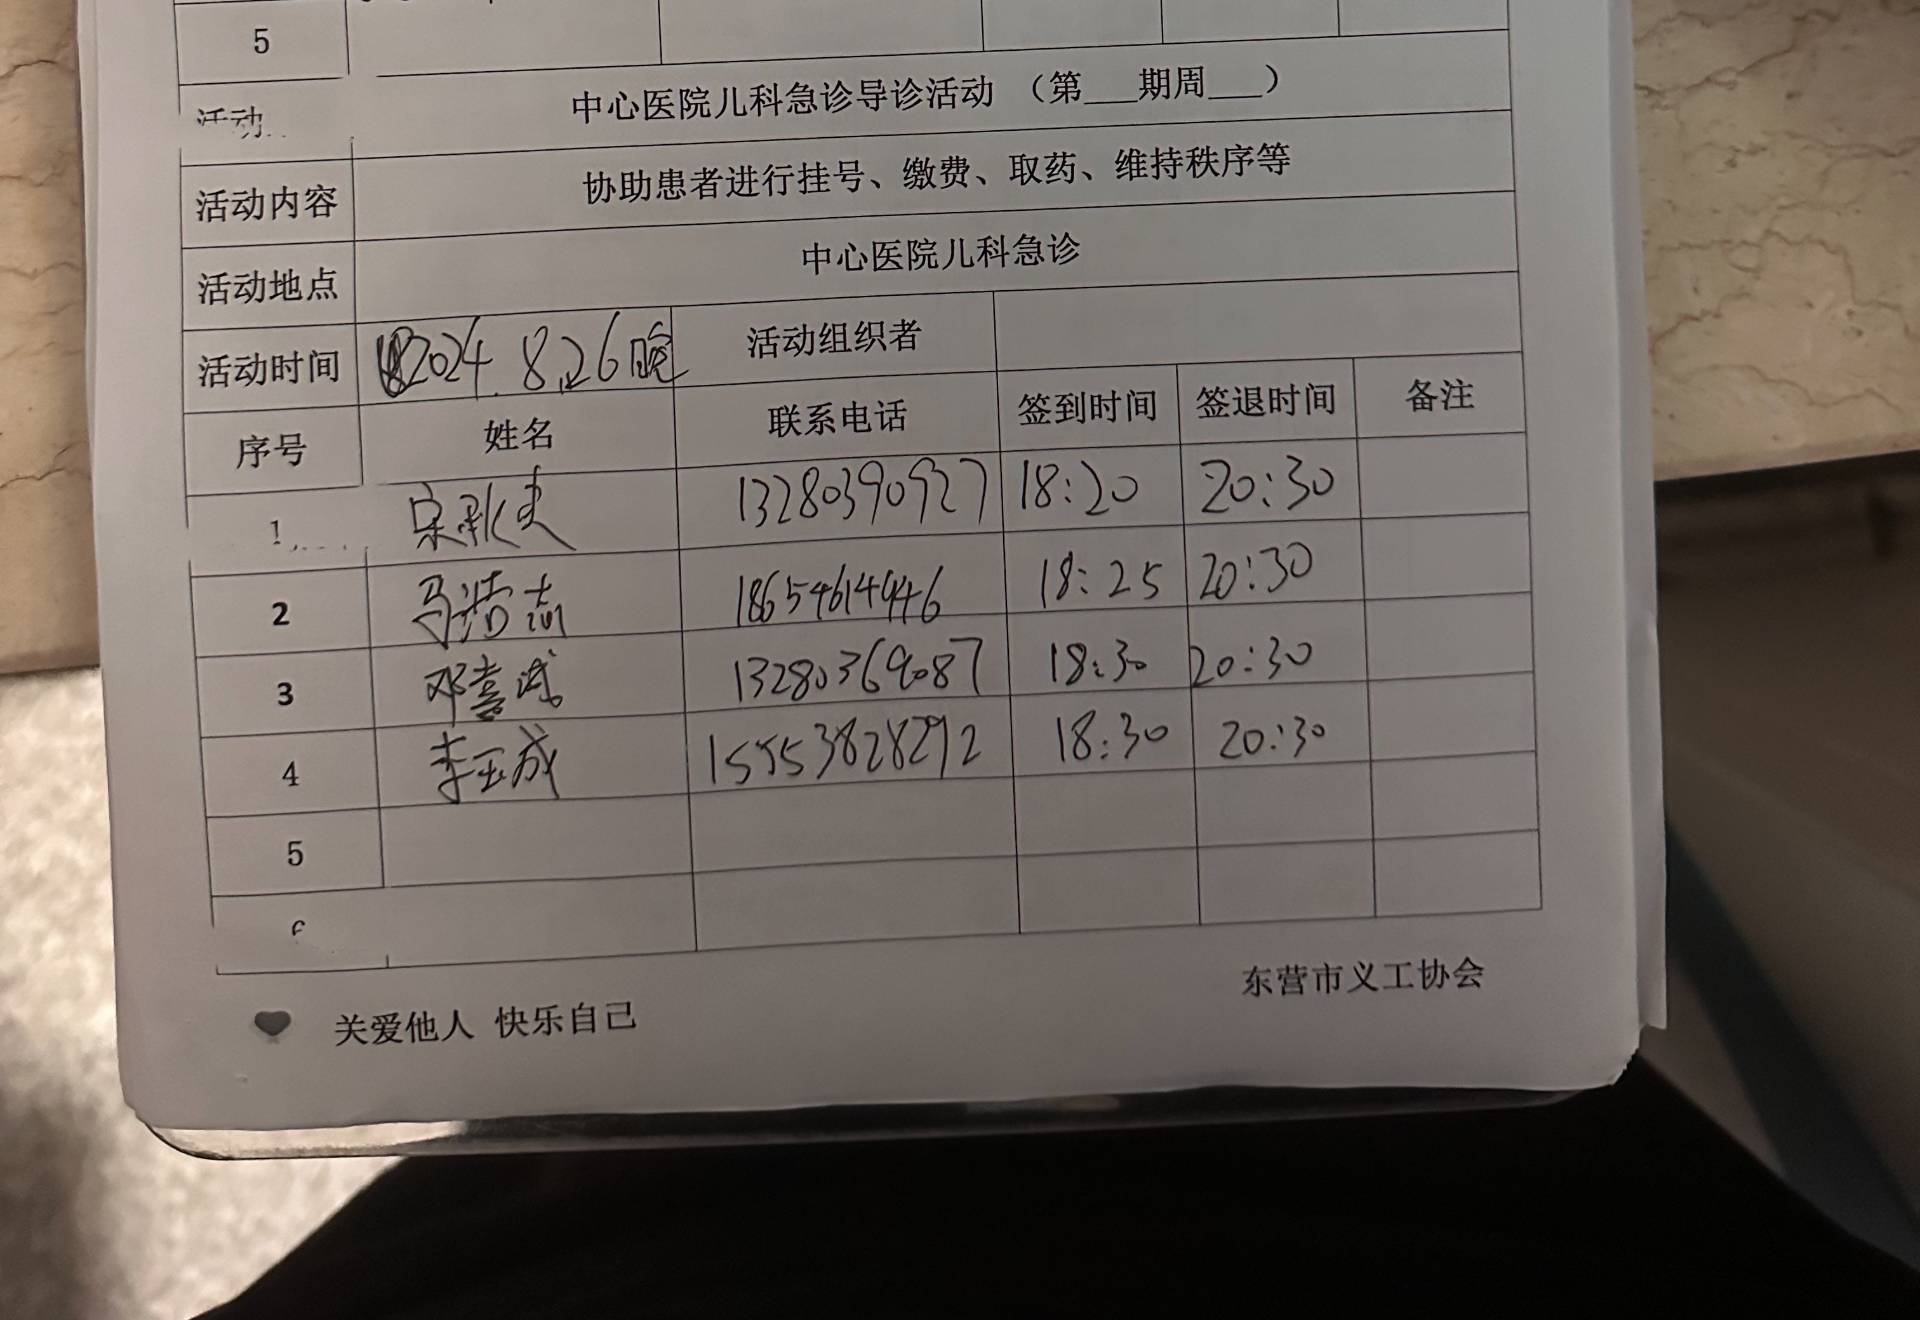 5
活动 中心医院儿科急诊导诊活动 （第___期周___）
活动内容 协助患者进行挂号、缴费、取药、维持秩序等
活动地点 中心医院儿科急诊
活动时间 2024.8.26晚 活动组织者
序号 姓名 联系电话 签到时间 签退时间 备注
1 13280390927 18:20 20:30
2 马浩志 18654614446 18:25 20:30
3 邓喜诚 13280369087 18:30 20:30
4 李玉成 15553828292 18:30 20:30
5
关爱他人 快乐自己
东营市义工协会